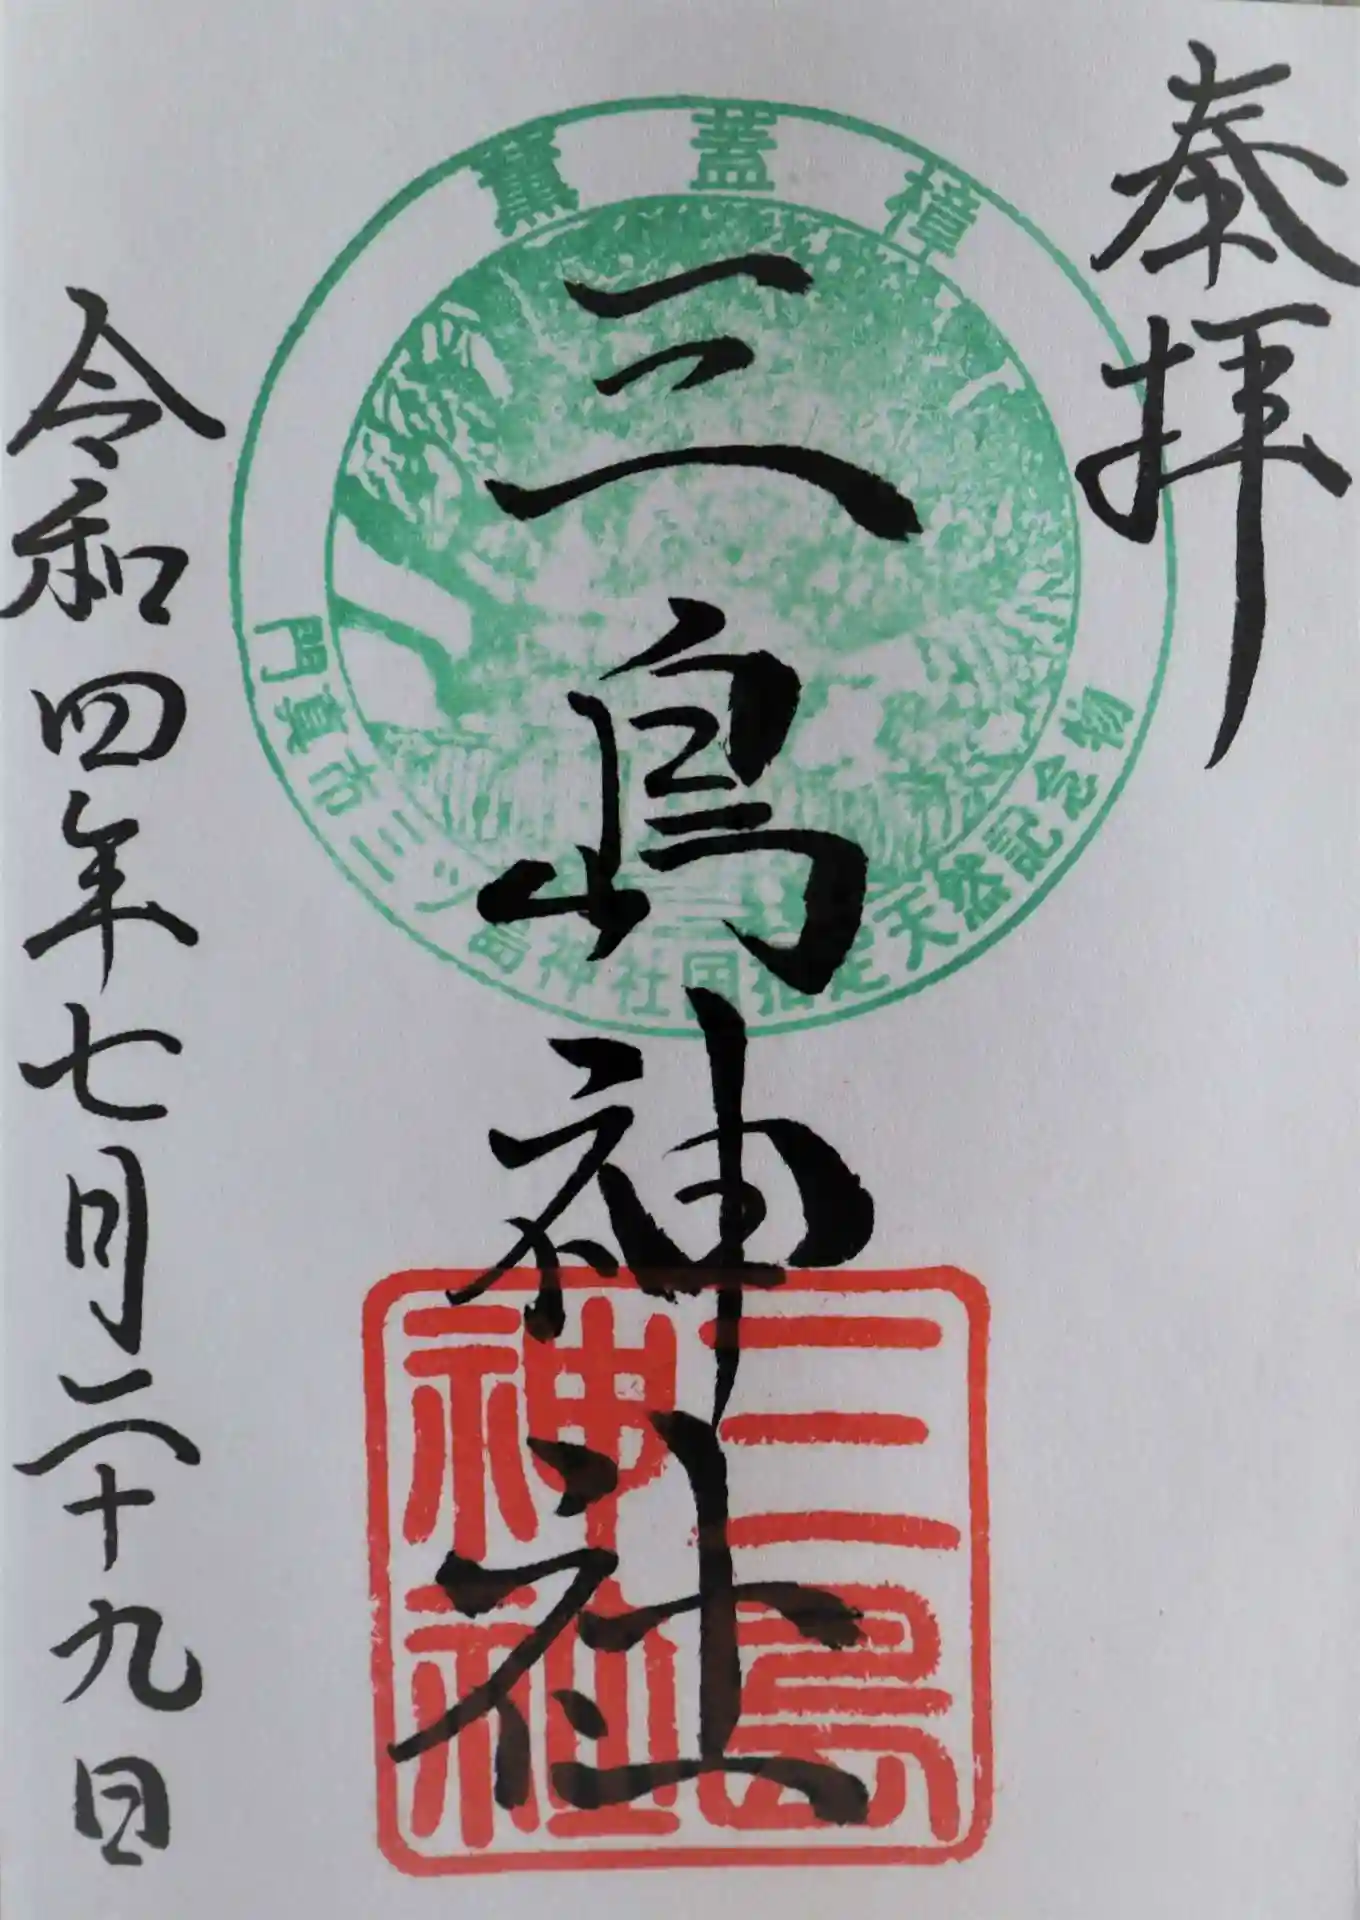 奉拝
三島神社
令和四年七月二十九日
薫蓋樟
門真市三ツ島神社国指定天然記念物
三島
神社